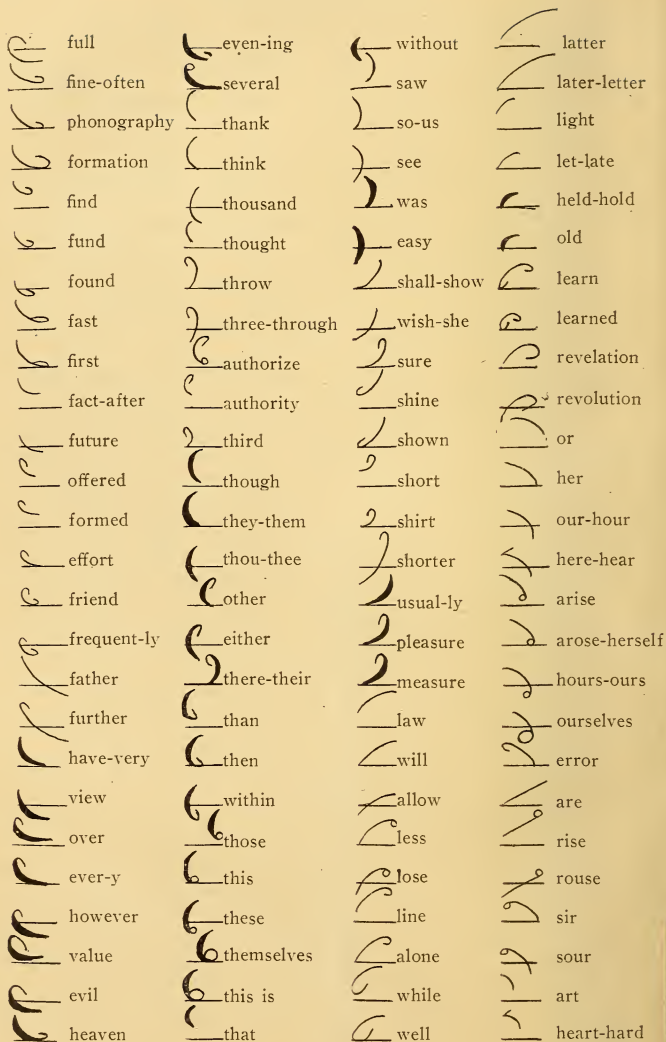 full
fine-often
phonography
formation
find
fund
found
fast
first
fact-after
future
offered
formed
effort
friend
frequent-ly
father
further
have-very
view
over
ever-y
however
value
evil
heaven
even-ing
several
thank
think
thousand
thought
throw
three-through
authorize
authority
third
though
they-them
thou-thee
other
either
there-their
than
then
within
those
this
these
themselves
this is
that
without
saw
so-us
see
was
easy
shall-show
wish-she
sure
shine
shown
short
shirt
shorter
usual-ly
pleasure
measure
law
will
allow
less
lose
line
alone
while
well
latter
later-letter
light
let-late
held-hold
old
learn
learned
revelation
revolution
or
her
our-hour
here-hear
arise
arose-herself
hours-ours
ourselves
error
are
rise
rouse
sir
sour
art
heart-hard